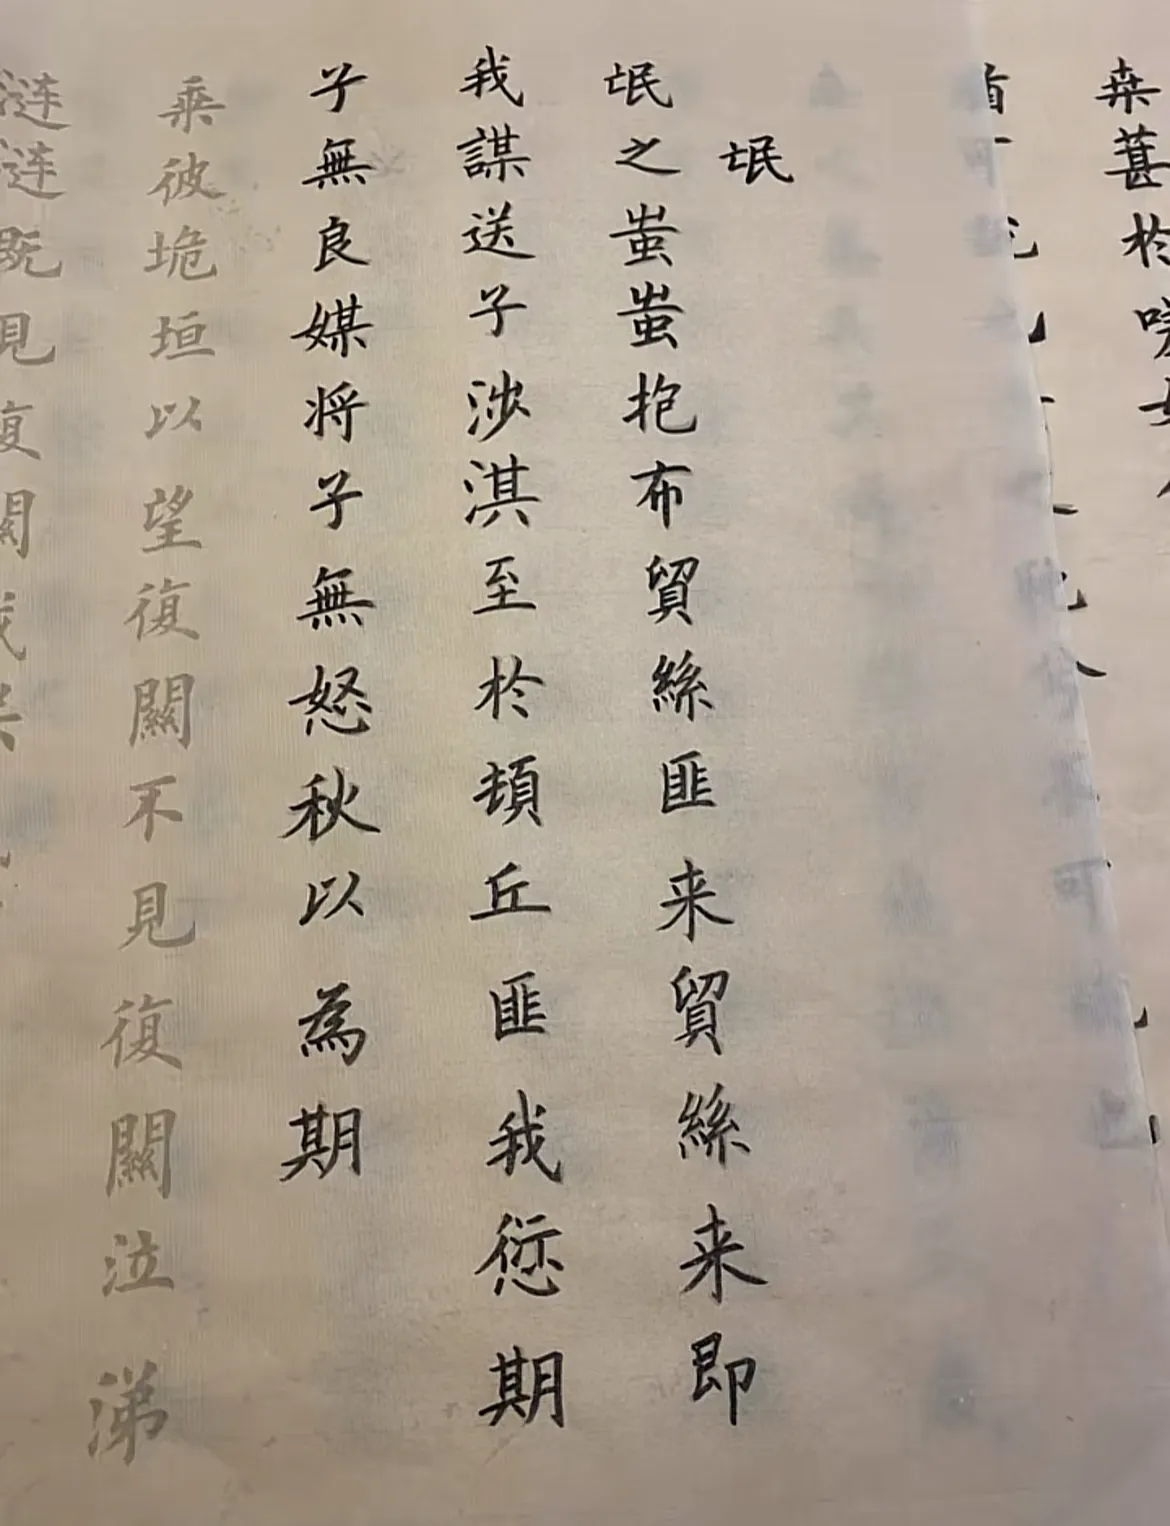 桒葚於
氓
氓之蚩蚩抱布貿絲匪来貿絲来即
我謀送子涉淇至於頓丘匪我愆期
子無良媒将子無怒秋以為期
乗彼垝垣以望復關不見復關泣涕
漣漣既見復關